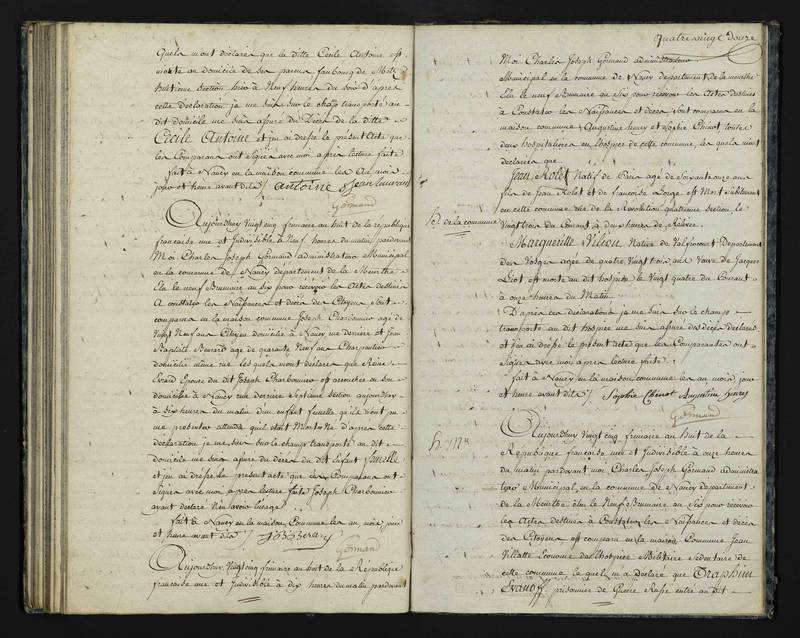 quels m'ont déclaré que la ditte Cécile Antoine est
morte au domicile de ses parens faubourg de Metz
huitieme section hier à Neuf heures du soir d'apres
cette déclaration je me suis sur le champ transporté au
dit domicile me suis assuré du Décès de la ditte
Cécile Antoine et j'en ai dressé le présent Acte que
les Comparans ont signés avec moi apres lecture faite
fait à Nancy en la maison commune les An mois
jour et heure avant dits / antoine Jean
Gormand
Aujourd'huy vingt cinq frimaire au huit de la république
francaise une et Indivisible à Neuf heures du matin pardevant
Moi Charles Joseph Gormand administrateur Municipal
en la commune de Nancy departement de la Meurthe
Elu le neuf Brumaire an Six pour recevoir les Actes destinés
A constater les Naissances et décès des Citoyens sont
comparus en la maison commune Joseph Charbonnier agé de
vingt Neuf ans Citoyen domicilié à Nancy rue derriere et Jean
Baptiste Berard age de quarante Neuf ans Charpentier
domicilié même rue les quels m'ont déclaré que Reine
Evrard Epouse du dit Joseph Charbonnier est accouchée en son
domicile à Nancy rue derriere Septieme section aujourd'huy
à Six heures du matin d'un enfant femelle qu'ils n'ont pu
me présenter attendu qu'il étoit Mort Né d'apres cette
déclaration je me suis sur le champ transporté au dit
domicile me suis assuré du décès du dit Enfant femelle
et j'en ai dressé le présent acte que les Comparans ont
Signés avec moi apres lecture faite Joseph Charbonnier
ayant déclaré N'en savoir l'usage
fait à Nancy en la maison Commune les an, mois, jour
et heure avant dits / J B Berard
Gormand
Aujourd'huy vingt cinq frimaire an huit de la République
francaise une et Indivisible à dix heures du matin pardevant
Quatre vingt douze
Moi Charles Joseph Gormand administrateur
Municipal en la commune de Nancy departement de la meurthe
Elu le neuf Brumaire an Six pour recevoir les Actes destinés
à Constater les Naissances et décès, sont comparus en la
maison commune Augustine henry et Sophie Chénot toutes
deux hospitalieres en l'hospice de cette commune, les quels m'ont
déclarées que
Jean Rolet Natif de Paris age de Soixante onze ans
fils de Jean Rolet et de francoise est Mort Subitement
en cette commune rue de la Révolution quatrieme section le
vingt trois du Courant à deux heures de Relevée.
h. de la commune
Marguerite Native de Departement
des Vosges agée de quatre vingt trois ans Veuve de Jacques
est morte au dit hospice le vingt quatre du Courant
à onze heures du Matin
D'apres ces déclarations je me suis sur le champ
transporté au dit hospice me suis assuré des décès déclarés
et j'en ai dressé le présent acte que les Comparantes ont
signés avec moi apres lecture faite
fait à Nancy en la maison commune les an mois jour
et heure avant dits / Sophie Chénot Augustine henry
Gormand
h. Mre
Aujourd'huy vingt cinq frimaire an huit de la
République francaise une et Indivisible à onze heures
du matin pardevant moi Charles Joseph Gormand administra
teur Municipal en la commune de Nancy departement
de la Meurthe élu le Neuf Brumaire an Six pour recevoir
les Actes destinés à Constater les Naissances et décès
des Citoyens est comparu en la maison Commune Jean
Villatte Econome de l'hospice Militaire Sedentaire de
cette commune le quel m'a déclaré que Traphim
Evanoff prisonnier de Guerre Russe entré au dit